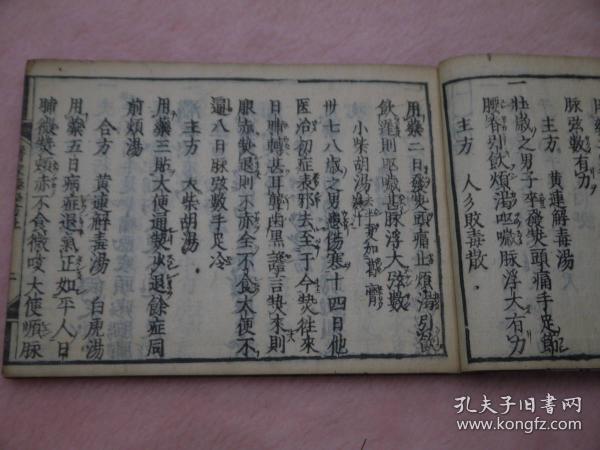 脉弦數有力
主方 黄連解毒湯
一
壮歳之男子卒發熱頭痛手足節
腰脊別飲煩渴嘔噦脉浮大有力
主方 人多敗毒散
用藥二日發熱頭痛止煩渇引飲
飲雜則嘔噦甚脉浮大弦數
小柴胡湯 加
廿七八歳之男患傷寒十四日他
医治初症表邪去至于今熱往來
日晡轉甚耳聾齒黒譫言熱來則
眼赤熱退則不亦全不食大便不
通八日脉弦數手足冷
主方 大柴胡湯
用藥三貼大便通熱少退餘症同
前煩湯
合方 黄連解毒湯 白虎湯
用藥五日病症退氣正如平人日
晡微熱頬赤不食微咳大便順脉
孔夫子旧書网
www.kongfz.com